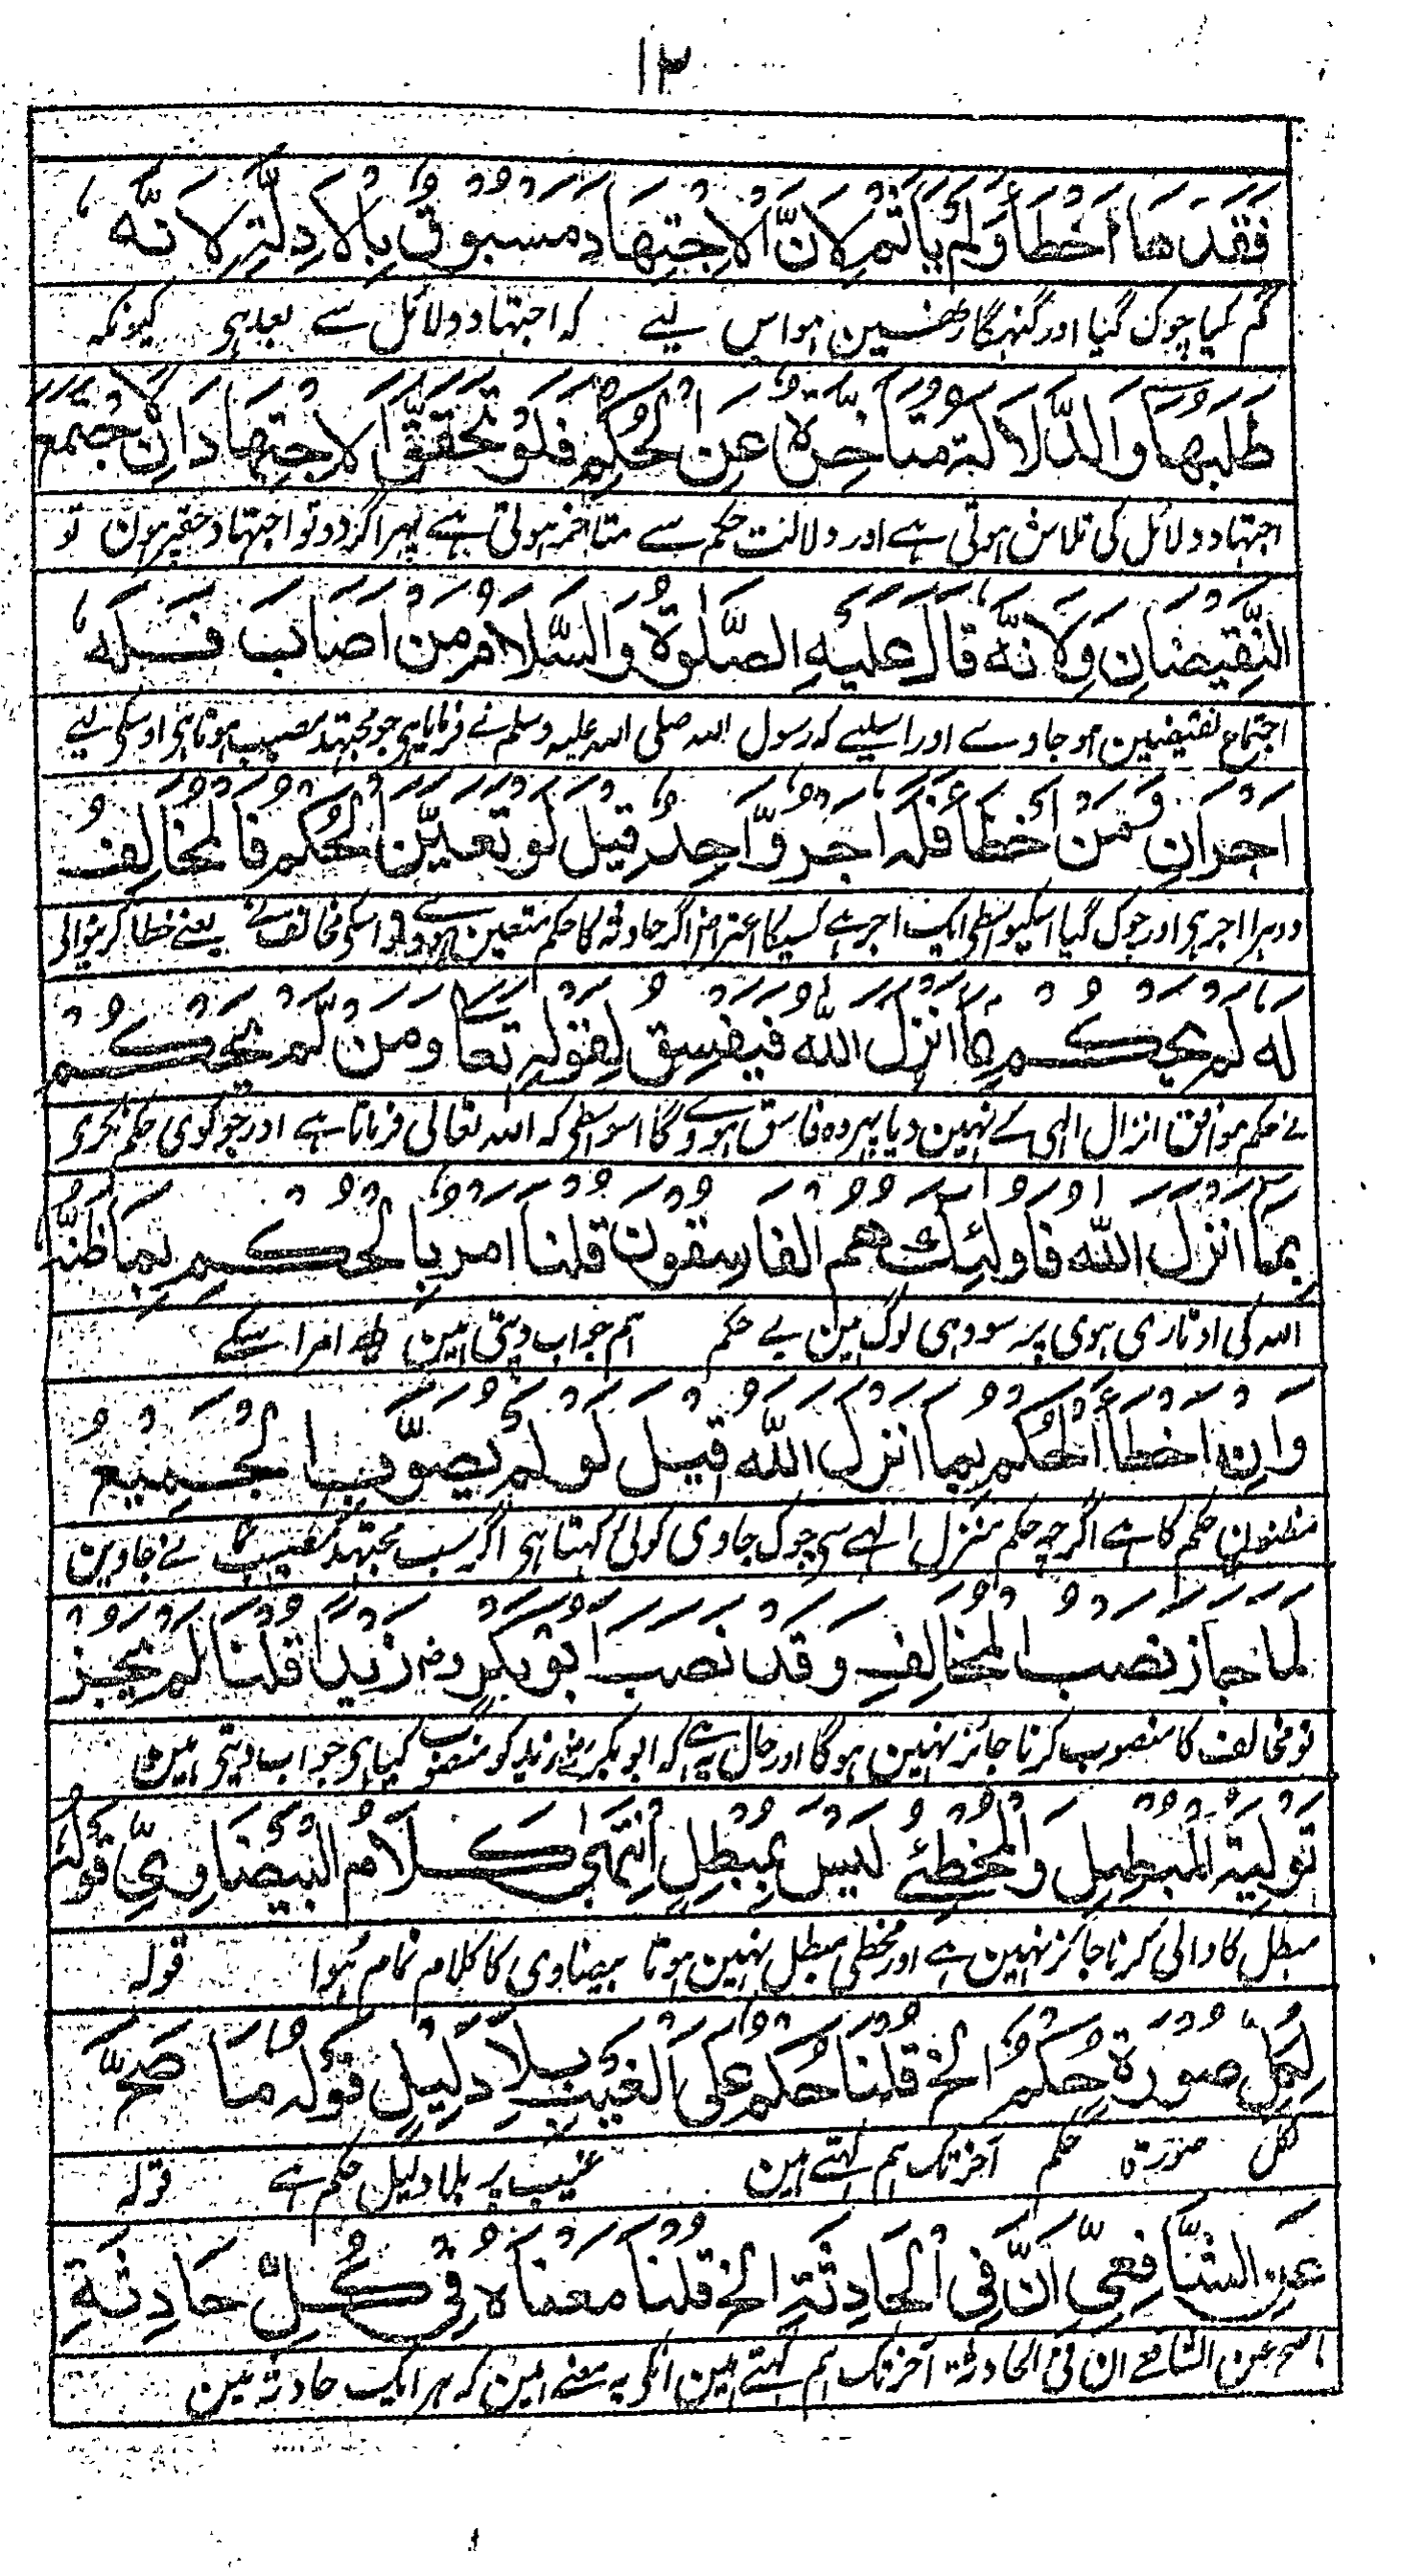 ١٢
فَقَدَهَا اَخْطَأَ وَلَمْ يَأْثَمْ لِاَنَّ الْاِجْتِهَادَ مَسْبُوْقٌ بِالْاَدِلَّةِ لِاَنَّهٗ
گم کیا چوک گیا اور گنہگار نہین ہوا اس لیے کہ اجتہاد دلائل سے بعد ہی کیونکہ
طَلَبُهَا وَالدَّلَالَةُ مُتَأَخِّرَةٌ عَنِ الْحُكْمِ فَلَوْ تَحَقَّقَ الْاِجْتِهَادَانِ لَاجْتَمَعَ
اجتہاد دلائل کی تلاش ہوتی ہے اور دلالت حکم سے متاخر ہوتی ہے پہر اگر دو تو اجتہاد حقیر ہون تو
النَّقِيْضَانِ وَلِاَنَّهٗ قَالَ عَلَيْهِ الصَّلٰوةُ وَالسَّلَامُ مَنْ اَصَابَ فَلَهٗ
اجتماع نقیضین ہو جاوے اور اسلیے کہ رسول اللہ صلی اللہ علیہ وسلم نے فرمایا ہی جو مجتہد مصیب ہوتا ہی اوسکی لیے
اَجْرَانِ وَمَنْ اَخْطَأَ فَلَهٗ اَجْرٌ وَّاحِدٌ قِيْلَ لَوْ تَعَيَّنَ الْحُكْمُ فَالْمُخَالِفُ
دوہرا اجر ہی اور چوک گیا اسکیواسطی ایک اجر ہے کسیکا اعتراض اگر حادثہ کا حکم متعین ہووے تو اسکی مخالف نے یعنے خطا کرنیوالی
لَهٗ لَمْ يَحْكُمْ بِمَا اَنْزَلَ اللّٰهُ فَيَفْسُقُ لِقَوْلِهٖ تَعَالٰى وَمَنْ لَّمْ يَحْكُمْ
نے حکم موافق انزال الہی کے نہین دیا پہر وہ فاسق ہووے گا اسواسطی کہ اللہ تعالی فرماتا ہے اور جو کوی حکم نکری
بِمَا اَنْزَلَ اللّٰهُ فَاُولٰئِكَ هُمُ الْفَاسِقُوْنَ قُلْنَا اُمِرَ بِالْحُكْمِ بِمَا ظَنَّهٗ
اللہ کی اوتاری ہوی پر سو وہی لوگ ہین بے حکم ہم جواب دیتی ہین امر اسکے
وَاِنْ اَخْطَأَ الْحُكْمَ بِمَا اَنْزَلَ اللّٰهُ قِيْلَ لَوْ لَمْ يُصَوَّبِ الْجَمِيْعُ
مظنون حکم کا ہے اگرچہ حکم منزل الہے سی چوک جاوی کوئی کہتا ہی اگر سب مجتہد مصیب نجاوین
لَمَا جَازَ نَصْبُ الْمُخَالِفِ وَقَدْ نَصَبَ اَبُوْ بَكْرٍ رض زَيْدًا قُلْنَا لَمْ يَجُزْ
تو مخالف کا منصوب کرنا جائز نہین ہوگا اور حال یہ ہے کہ ابو بکر رض نے زید کو منصوب کیا ہی جواب دیتی ہین
تَوْلِيَةُ الْمُبْطِلِ وَالْمُخْطِئُ لَيْسَ بِمُبْطِلٍ اِنْتَهٰى كَلَامُ الْبَيْضَاوِيِّ قَوْلُهٗ
مبطل کا والی کرنا جائز نہین ہے اور مخطی مبطل نہین ہوتا بیضاوی کا کلام تمام ہوا قولہ
لِكُلِّ صُوْرَةٍ حُكْمٌ الخ قُلْنَا حُكْمٌ عَلَى الْغَيْبِ بِلَا دَلِيْلٍ قَوْلُهٗ مَا صَحَّ
لکل صورۃ حکم آخر تک ہم کہتے ہین غیب پر بلا دلیل حکم ہے قولہ
عَنِ الشَّافِعِيِّ اَنَّ فِي الْحَادِثَةِ الخ قُلْنَا مَعْنَاهُ فِيْ كُلِّ حَادِثَةٍ
ما صح عن الشافعے ان فی الحادثۃ آخر تک ہم کہتے ہین انکی یہ معنے ہین کہ ہر ایک حادثہ مین